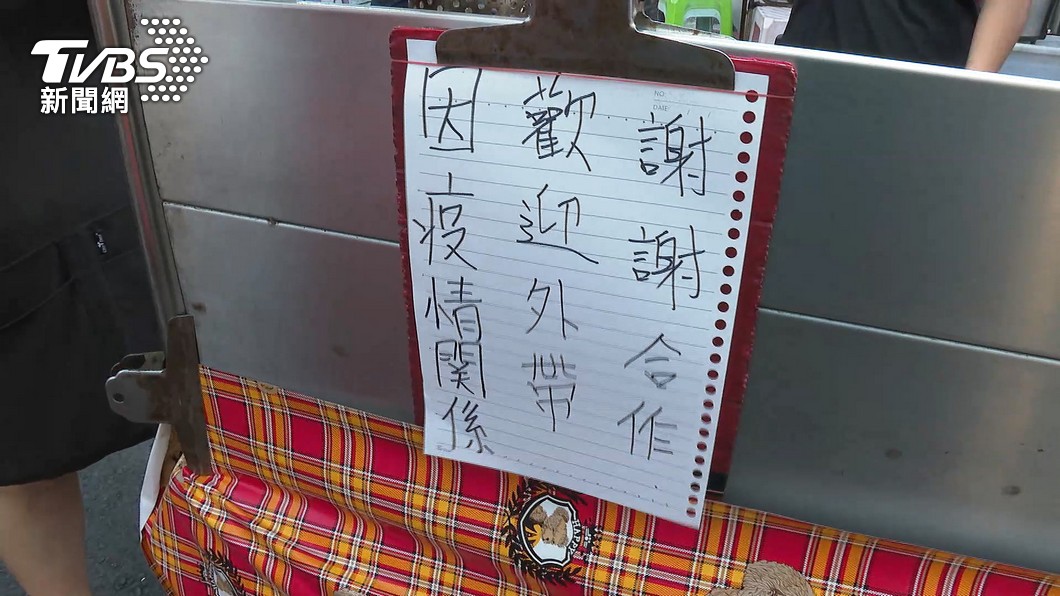 TVBS
新聞網
NO.
DATE
因疫情関係
歡迎外帶
謝謝合作
HAPPY